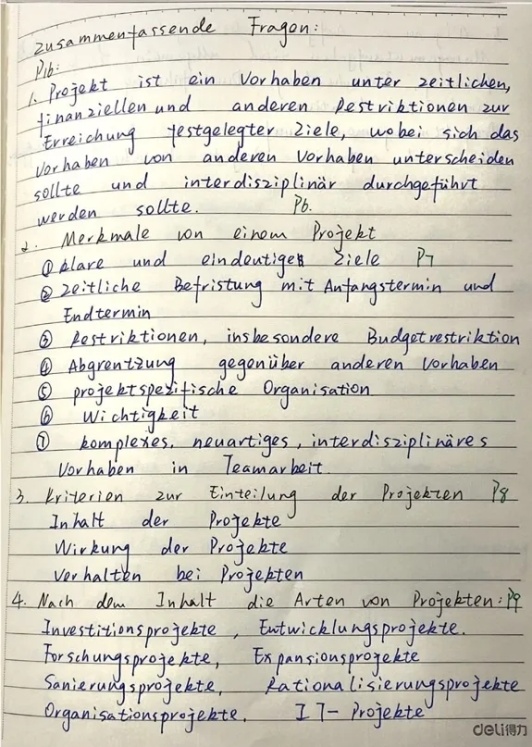 Zusammenfassende Fragen:
P16:
1. Projekt ist ein Vorhaben unter zeitlichen,
finanziellen und anderen Restriktionen zur
Erreichung festgelegter Ziele, wobei sich das
Vorhaben von anderen Vorhaben unterscheiden
sollte und interdisziplinär durchgeführt
werden sollte. P6.
2. Merkmale von einem Projekt
① klare und eindeutige Ziele P7
② zeitliche Befristung mit Anfangstermin und
Endtermin
③ Restriktionen, insbesondere Budgetrestriktion
④ Abgrentzung gegenüber anderen Vorhaben
⑤ projektspezifische Organisation
⑥ Wichtigkeit
⑦ komplexes, neuartiges, interdisziplinäres
Vorhaben in Teamarbeit
3. Kriterien zur Einteilung der Projekten P8
Inhalt der Projekte
Wirkung der Projekte
Verhalten bei Projekten
4. Nach dem Inhalt die Arten von Projekten: P9
Investitionsprojekte, Entwicklungsprojekte.
Forschungsprojekte, Expansionsprojekte
Sanierungsprojekte, Rationalisierungsprojekte
Organisationsprojekte. IT-Projekte
deli得力